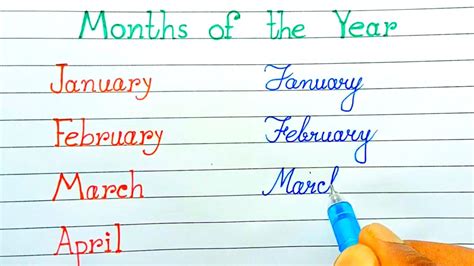 Months of the Year
January January
February February
March March
April